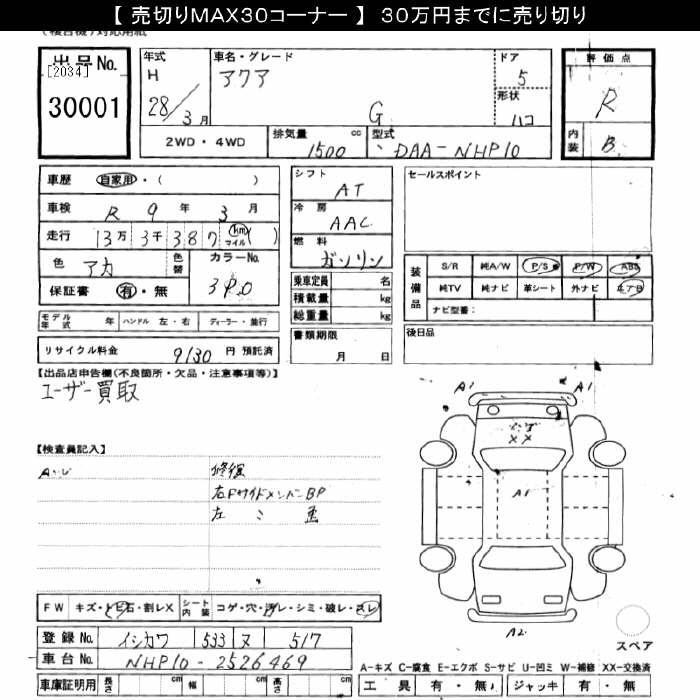 【 売切りMAX30コーナー 】 30万円までに売り切り
出品No.
[2034]
30001
年式
H
28/3月
車名・グレード
アクア
G
ドア
5
形状
ハコ
評価点
R
内装
B
2WD・4WD
排気量 1500 cc
型式 DAA-NHP10
車歴 自家用・( )
車検 R 9 年 3 月
走行 13万 3千 387 km マイル ( )
色 アカ 色替 カラーNo.
3P0
保証書 有・無
シフト AT
冷房 AAC
燃料 ガソリン
乗車定員 名
積載量 kg
総重量 kg
書類期限
月 日
セールスポイント
装備品
S/R 純A/W P/S P/W ABS
純TV 純ナビ 革シート 外ナビ エアB
ナビ型番:
後日品
モデル年式 年 ハンドル 左・右 ディーラー・並行
リサイクル料金 9130 円 預託済
【出品店申告欄(不良箇所・欠品・注意事項等)】
ユーザー買取
【検査員記入】
修復
右Fサイドメンバー BP
左 〃 歪
A1
A1
A1
A2
スペア
FW キズ・トビ石・割レX シート内装 コゲ・穴・汚レ・シミ・破レ・スレ
登録No. イシカワ 533 ヌ 517
車台No. NHP10-2526469
車庫証明用 長さ cm 幅 cm 高さ cm
A-キズ C-腐食 E-エクボ S-サビ U-凹ミ W-補修 XX-交換済
工具 有・無 ジャッキ 有・無